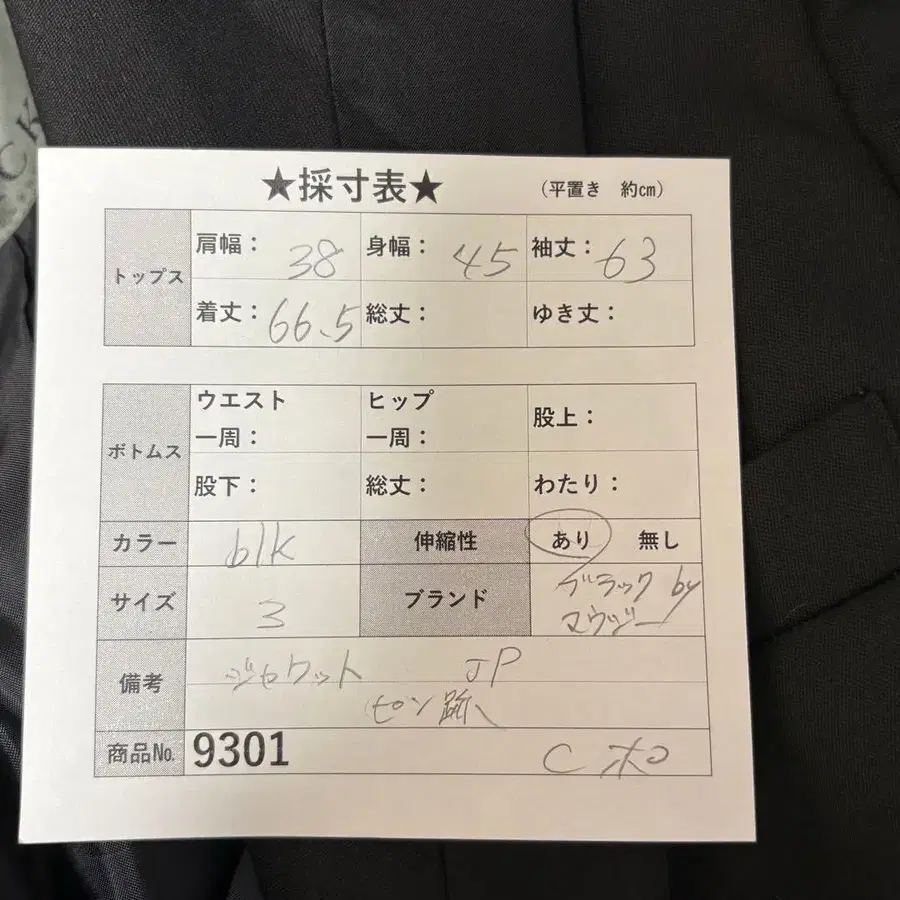 ★採寸表★ （平置き 約cm）
トップス
肩幅： 38 身幅： 45 袖丈： 63
着丈： 66.5 総丈： ゆき丈：
ボトムス
ウエスト一周： ヒップ一周： 股上：
股下： 総丈： わたり：
カラー blk 伸縮性 あり 無し
サイズ 3 ブランド ブラック by
マウジー
備考 ジャケット JP
ピン跡
商品No. 9301 C ポ